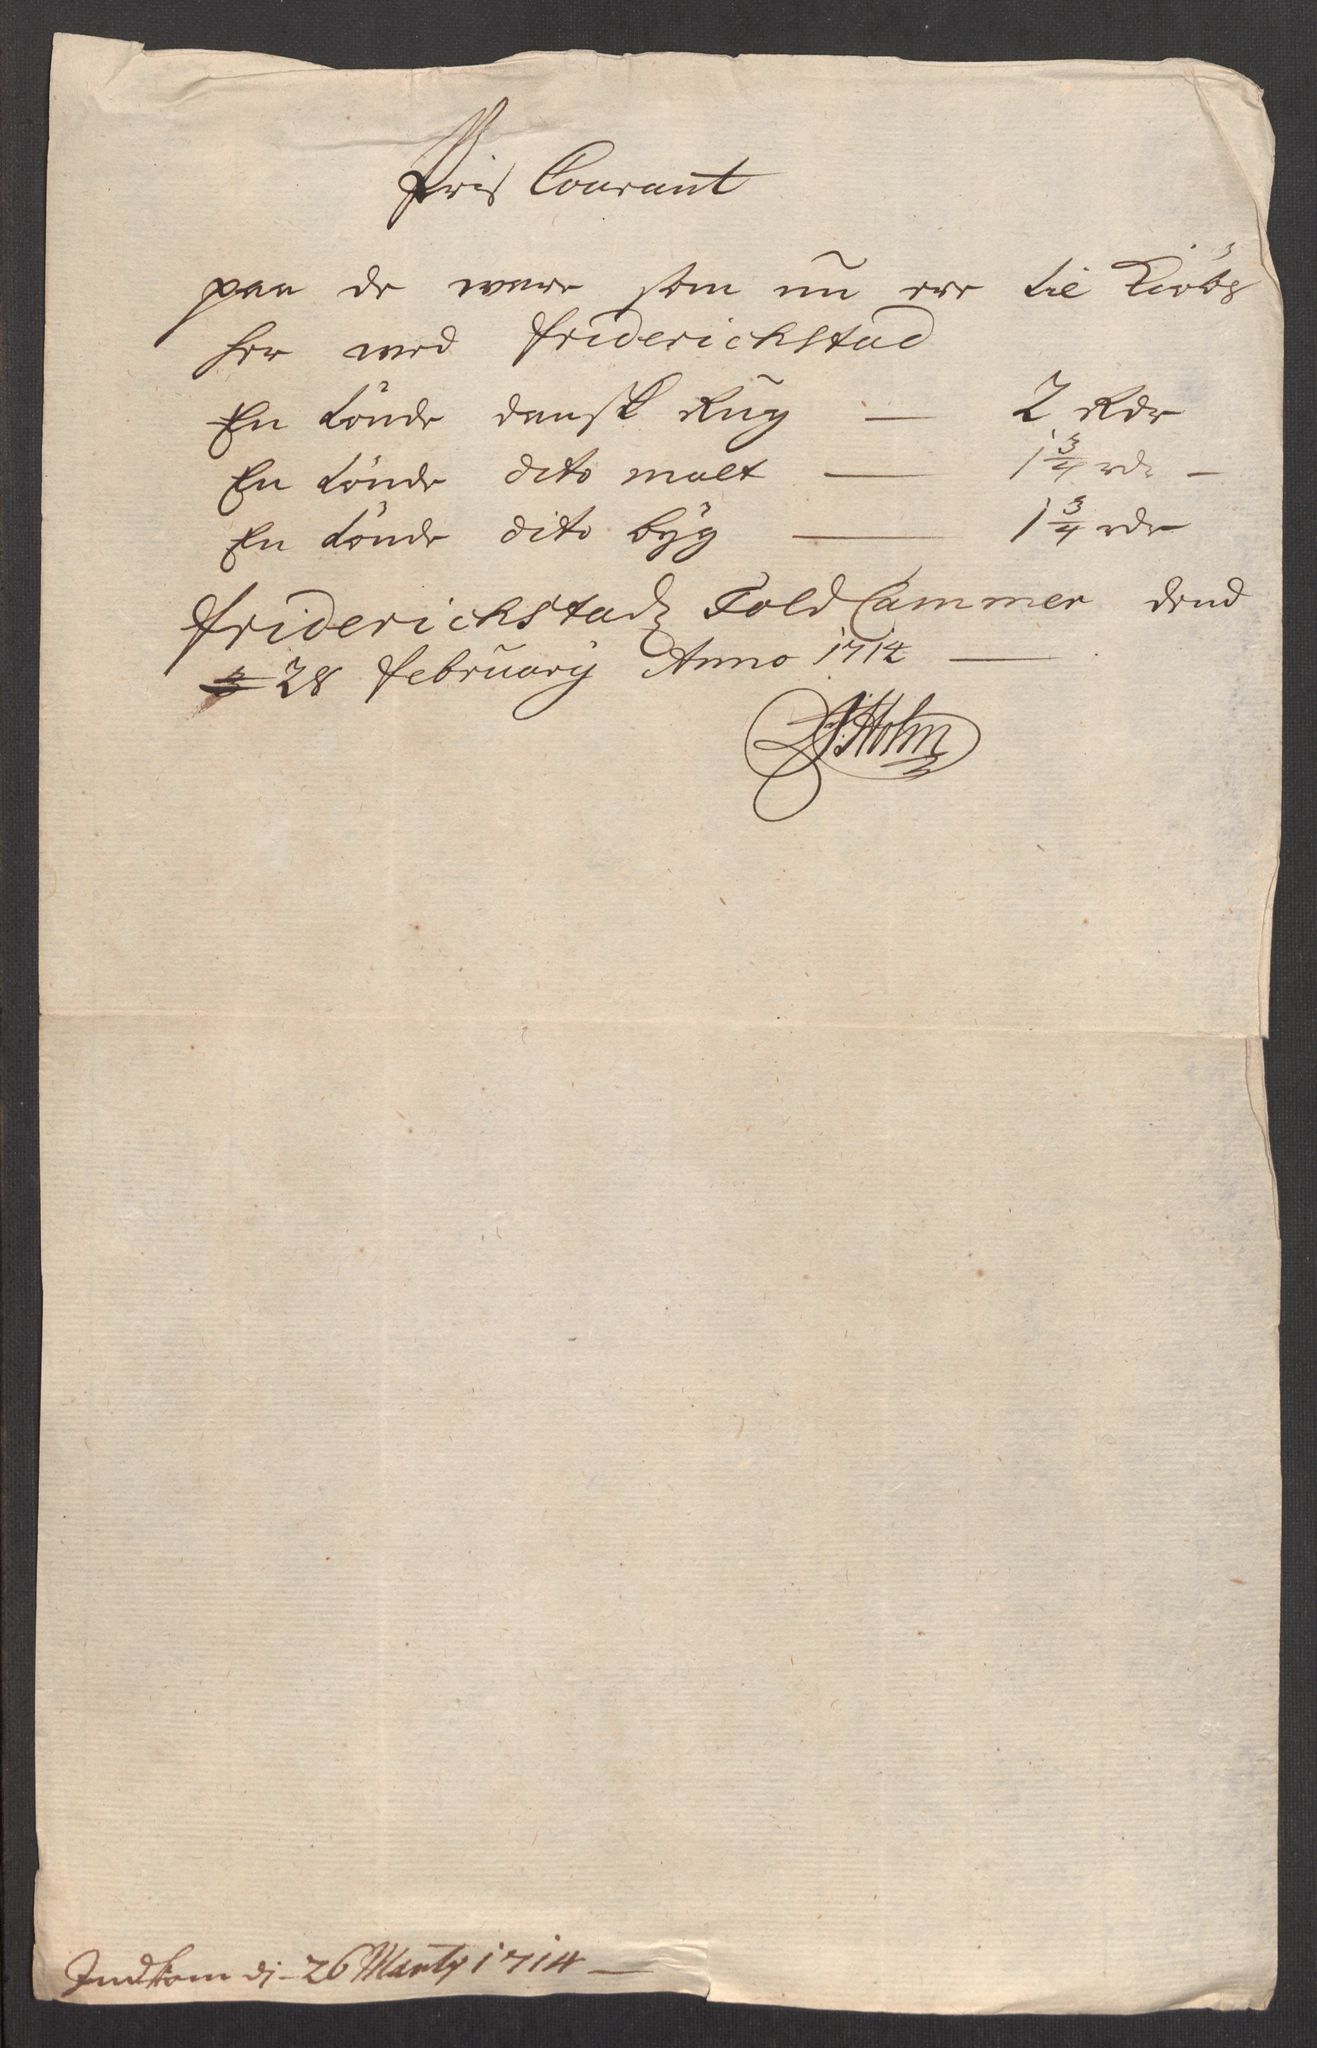 Pris Courant
paa de ware som nu ere til Kiöbs
her wed Friderichstad
En tönde dansk Rug — 2 Rdr
En tönde dito malt — 1 3/4 rdr —
En tönde dito byg — 1 3/4 rdr
Friderichstads Told Cammer dend
28 February Anno 1714 —
Holm
Indkom dj 26 Marty 1714 —